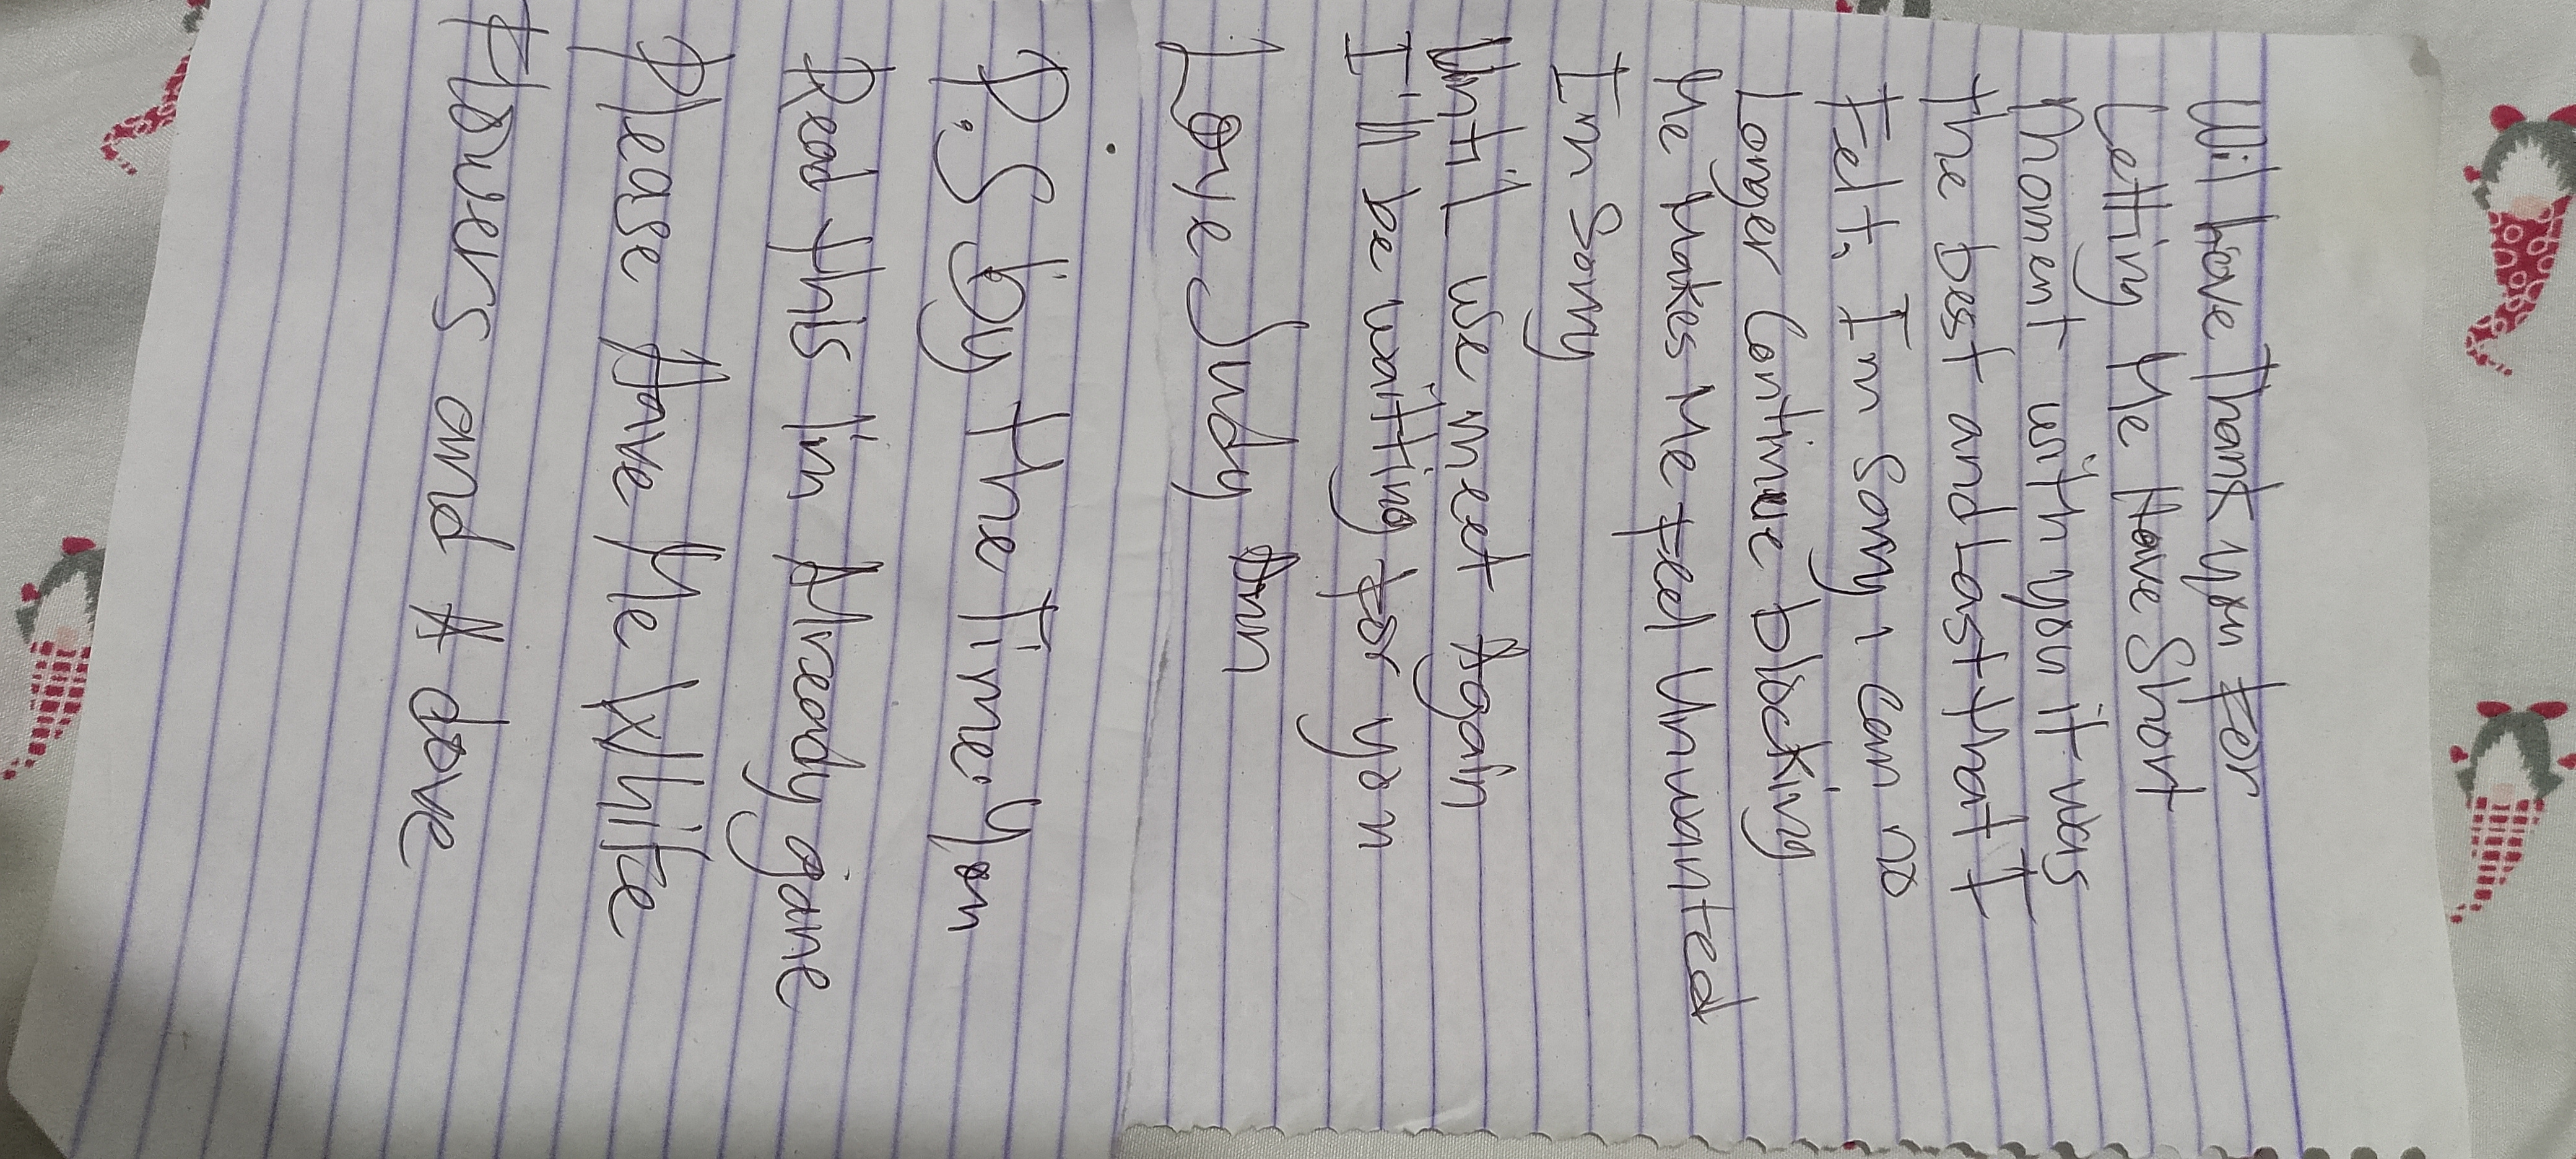 Wil love Thank you for
Letting Me Have Short
Moment with you it was
the best and Last that I
Felt. Im Sorry i can no
Longer Continue blocking
Me Makes Me feel Unwanted
Im Sorry
Until we meet Again
I'll be waitting for you
Love Judy Ann
P.S by the Time You
Read this im Alreody gone
Please Have Me White
Flowers and A dove